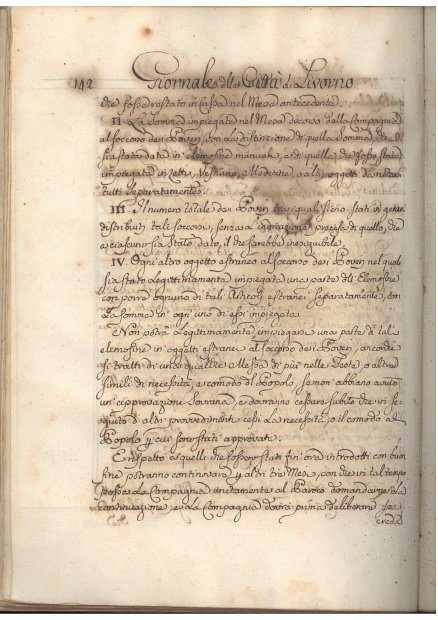 142 Giornale della Città di Livorno
che fosse restato in cassa nel Mese antecedente.
II La Somma impiegata nel Mese decorso dalla Compagnia
al soccorso dei Poveri, con la distinzione di quella Somma che
sia stata data in elemosine manuali, e di quella che fosse stata
impiegata in Letti, Vestiario, Medicine, o altri oggetti
separatamente.
III Il numero totale dei Poveri tra i quali sieno stati in gener
distribuiti tali soccorsi, senza l'indicazione precisa di quello, che
a ciascuno sia stato dato, il che sarebbe ineseguibile.
IV. Ogni altro oggetto estraneo al soccorso dei Poveri nel quale
sia stato legittimamente impiegata una parte dell'Elemosine
con porre ognuno di tali Articoli estranei separatamente, con
la somma in ogni uno di essi impiegata.
Non potrà legittimamente impiegarsi una parte di tali
elemosine in oggetti estranei al soccorso dei Poveri, ancorchè
si tratti di una qualche Messa di più nelle Feste, o altre
simili di necessità, e comodo di Popolo, se non abbiano avuto
un'approvazione Sovrana, e dovranno cessare subito che in se
guito d'altri provvedimenti cessi la necessità, o il comodo del
Popolo p cui sono stati approvati.
E rispetto a quelli che fossero stati fin'ora introdotti con buon
fine potranno continovare p altri tre Mesi, con che in tal tempo
possa la Compagnia unitamente al Paroco domandarne la
continuazione, e la Compagnia dovrà prima deliberare se
creda